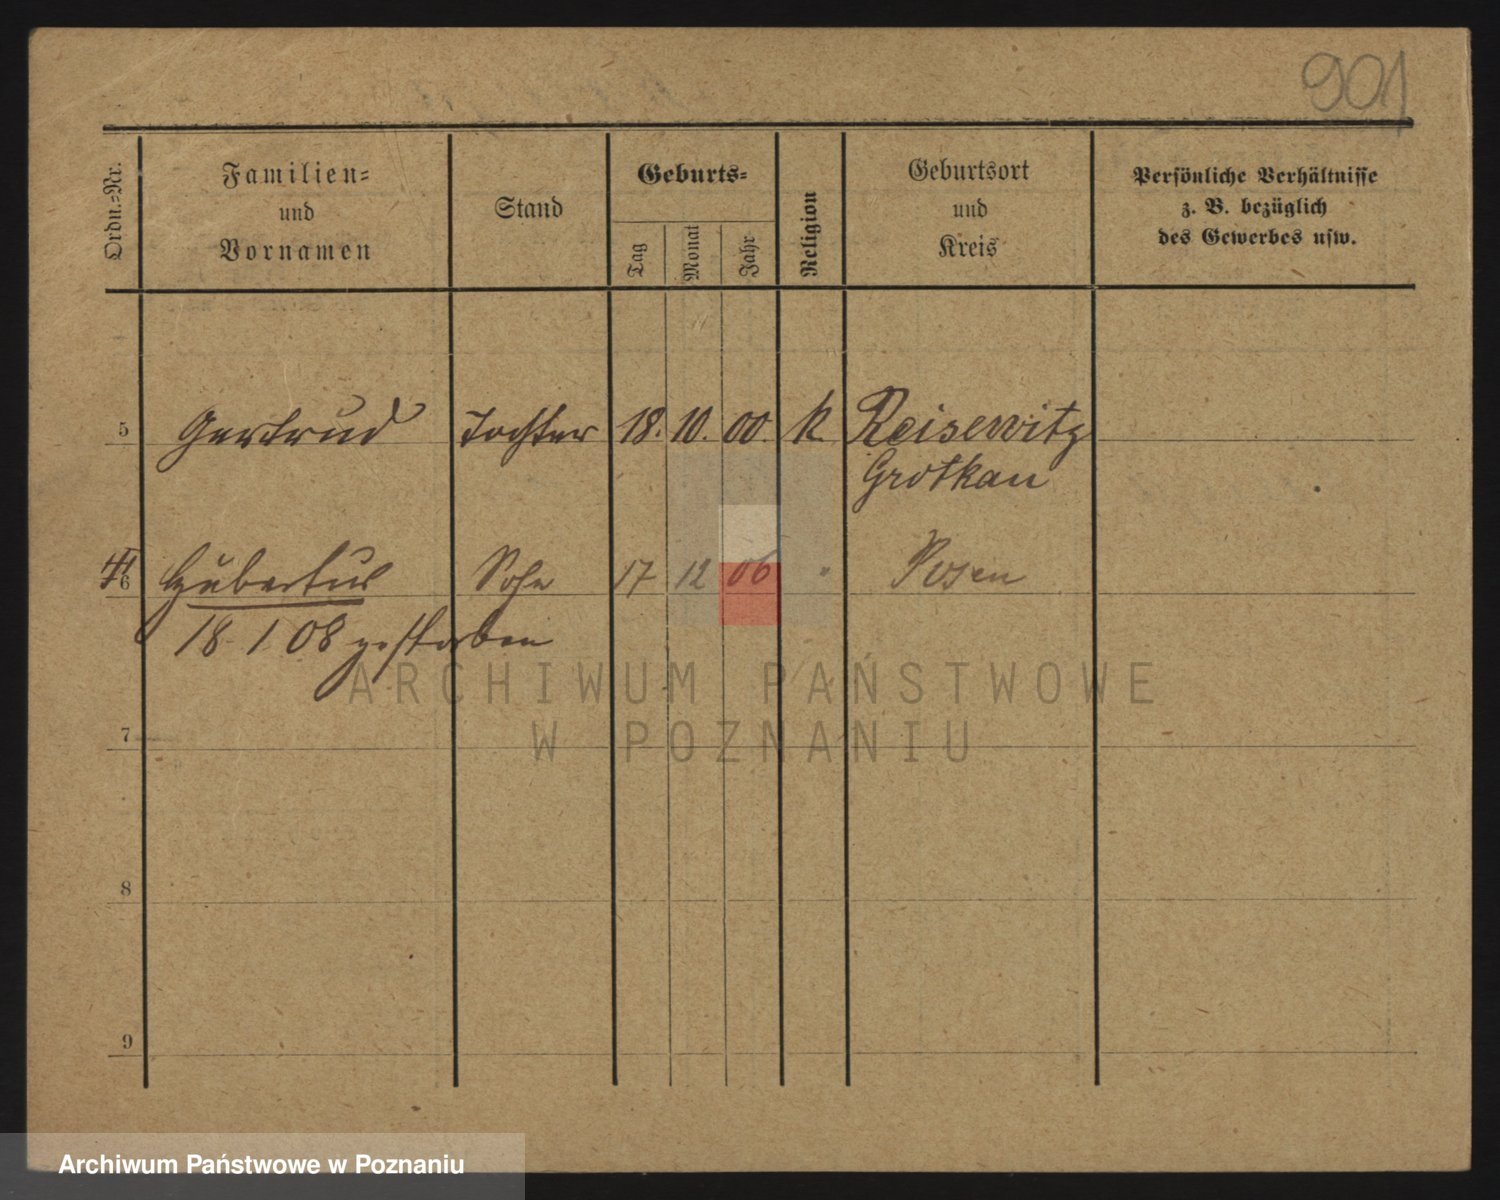 901
Ordn.-Nr.
Familien-
und
Vornamen
Stand
Geburts-
Tag
Monat
Jahr
Religion
Geburtsort
und
Kreis
Persönliche Verhältnisse
z. B. bezüglich
des Gewerbes usw.
5 Gertrud Tochter 18. 10. 00. k. Reisewitz
Grotkau
6 Hubertus Sohn 17 12 06 " Posen
18. 1 08 gestorben
ARCHIWUM PAŃSTWOWE
W POZNANIU
7
8
9
Archiwum Państwowe w Poznaniu